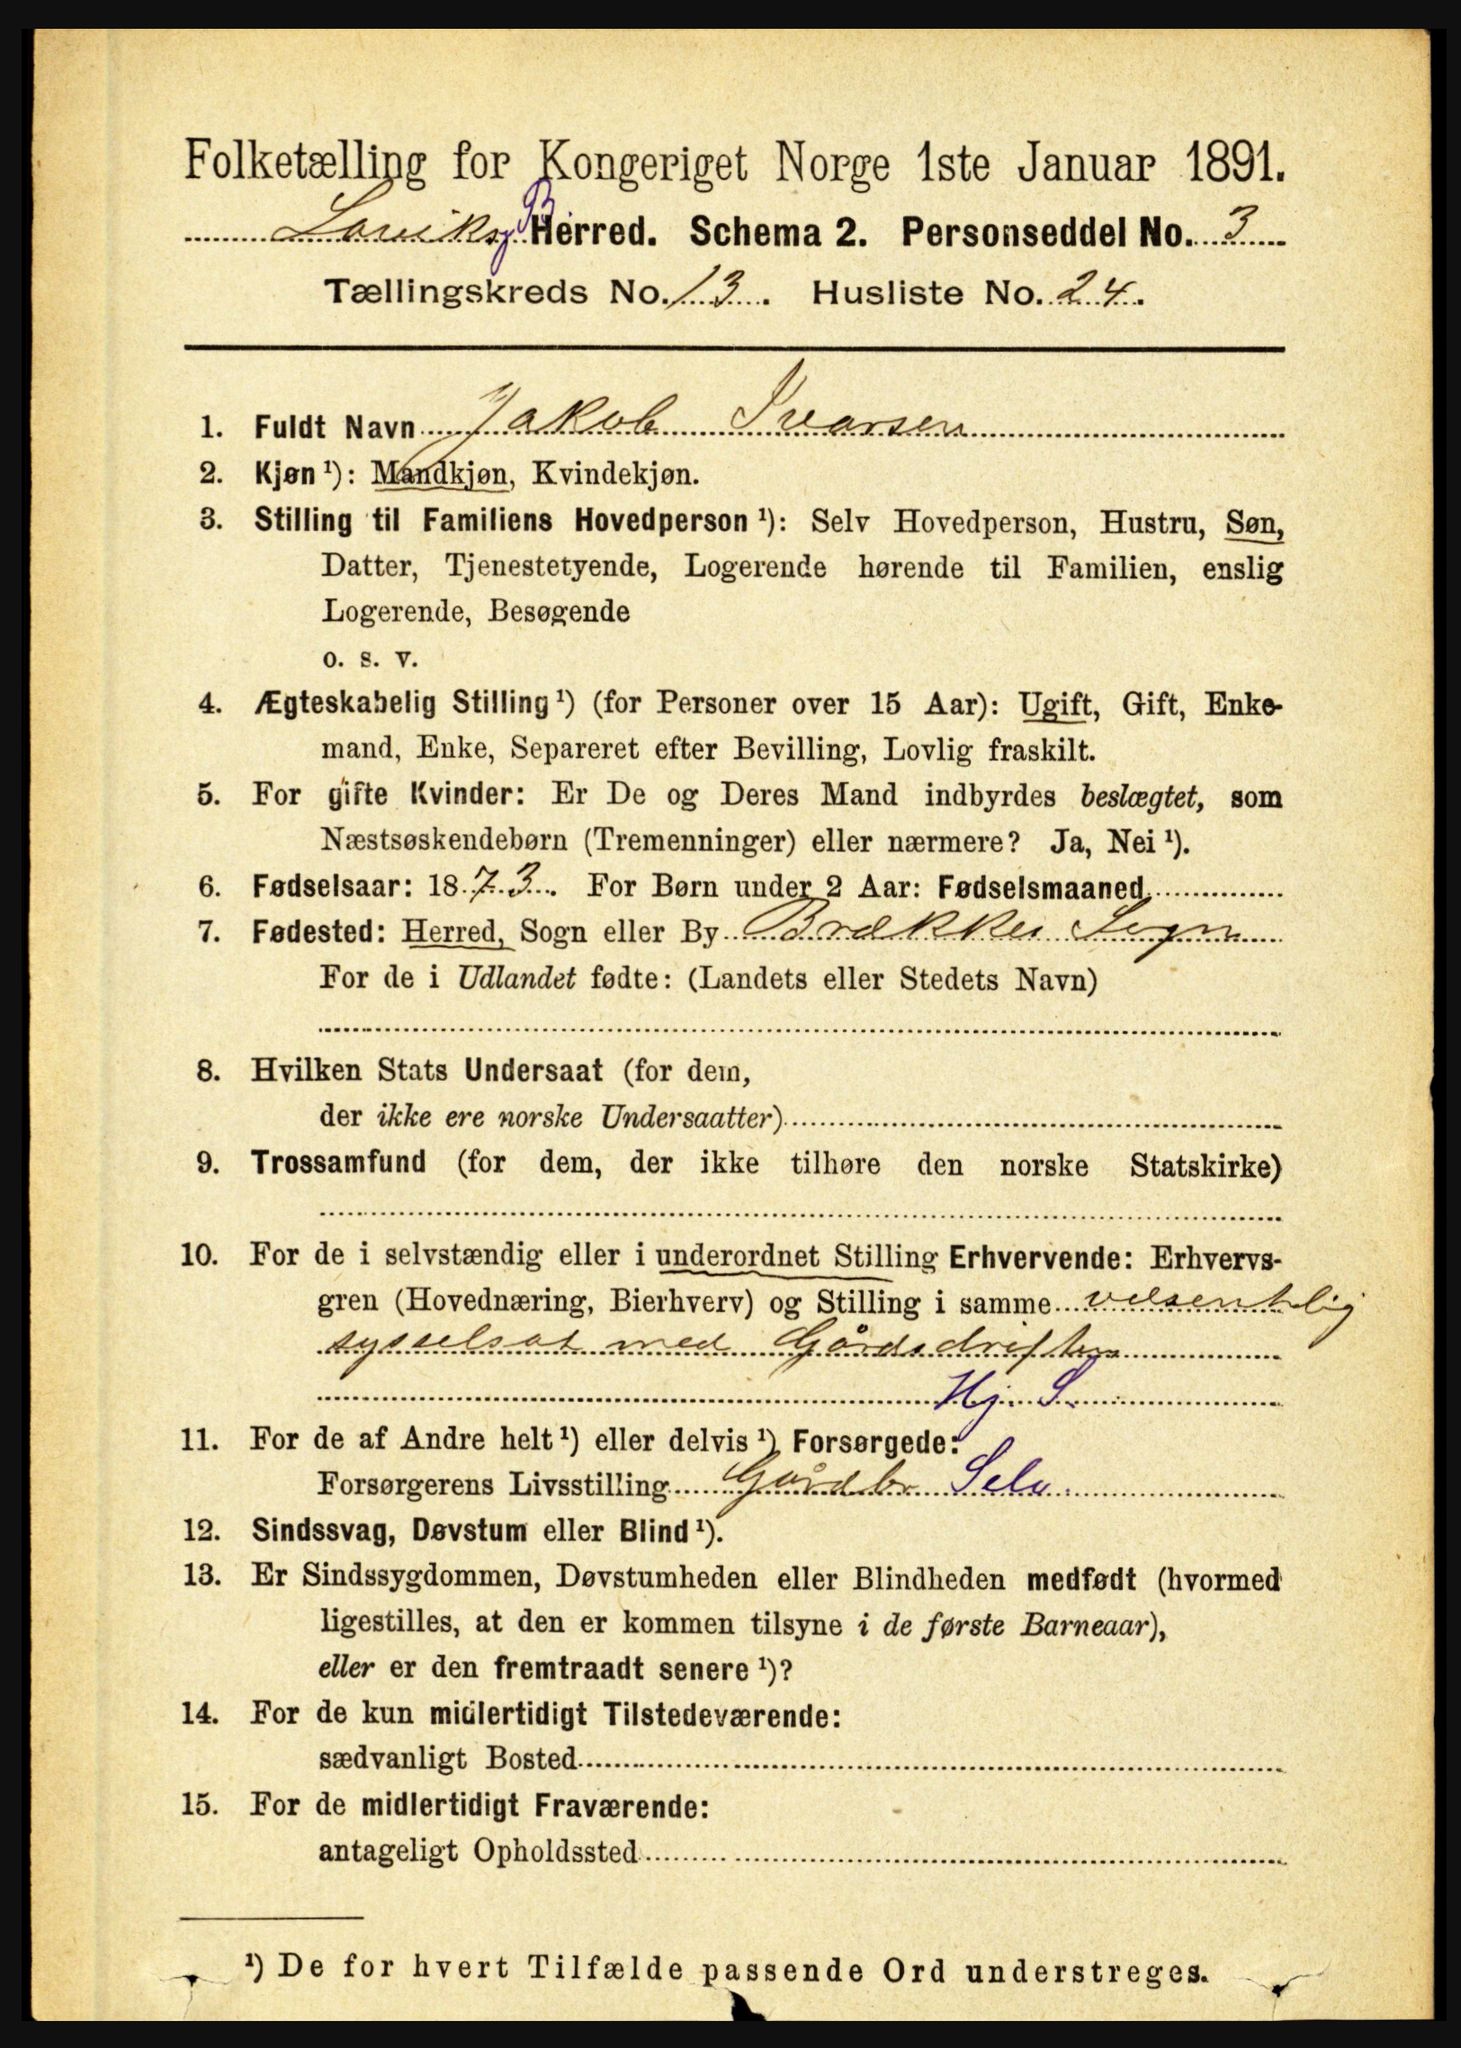 Folketælling for Kongeriget Norge 1ste Januar 1891.
Laviks B. Herred. Schema 2. Personseddel No. 3
Tællingskreds No. 13. Husliste No. 24.
1. Fuldt Navn Jakob Ivarsen
2. Kjøn ¹): Mandkjøn, Kvindekjøn.
3. Stilling til Familiens Hovedperson ¹): Selv Hovedperson, Hustru, Søn,
Datter, Tjenestetyende, Logerende hørende til Familien, enslig
Logerende, Besøgende
o. s. v.
4. Ægteskabelig Stilling ¹) (for Personer over 15 Aar): Ugift, Gift, Enke-
mand, Enke, Separeret efter Bevilling, Lovlig fraskilt.
5. For gifte Kvinder: Er De og Deres Mand indbyrdes beslægtet, som
Næstsøskendebørn (Tremenninger) eller nærmere? Ja, Nei ¹).
6. Fødselsaar: 1873. For Børn under 2 Aar: Fødselsmaaned
7. Fødested: Herred, Sogn eller By Brækkes Sogn
For de i Udlandet fødte: (Landets eller Stedets Navn)
8. Hvilken Stats Undersaat (for dem,
der ikke ere norske Undersaatter)
9. Trossamfund (for dem, der ikke tilhøre den norske Statskirke)
10. For de i selvstændig eller i underordnet Stilling Erhvervende: Erhvervs-
gren (Hovednæring, Bierhverv) og Stilling i samme væsentlig
sysselsat med Gårdsdriften
Hj. S.
11. For de af Andre helt ¹) eller delvis ¹) Forsørgede:
Forsørgerens Livsstilling Gårdbr Selv.
12. Sindssvag, Døvstum eller Blind ¹).
13. Er Sindssygdommen, Døvstumheden eller Blindheden medfødt (hvormed
ligestilles, at den er kommen tilsyne i de første Barneaar),
eller er den fremtraadt senere ¹)?
14. For de kun midlertidigt Tilstedeværende:
sædvanligt Bosted
15. For de midlertidigt Fraværende:
antageligt Opholdssted
¹) De for hvert Tilfælde passende Ord understreges.